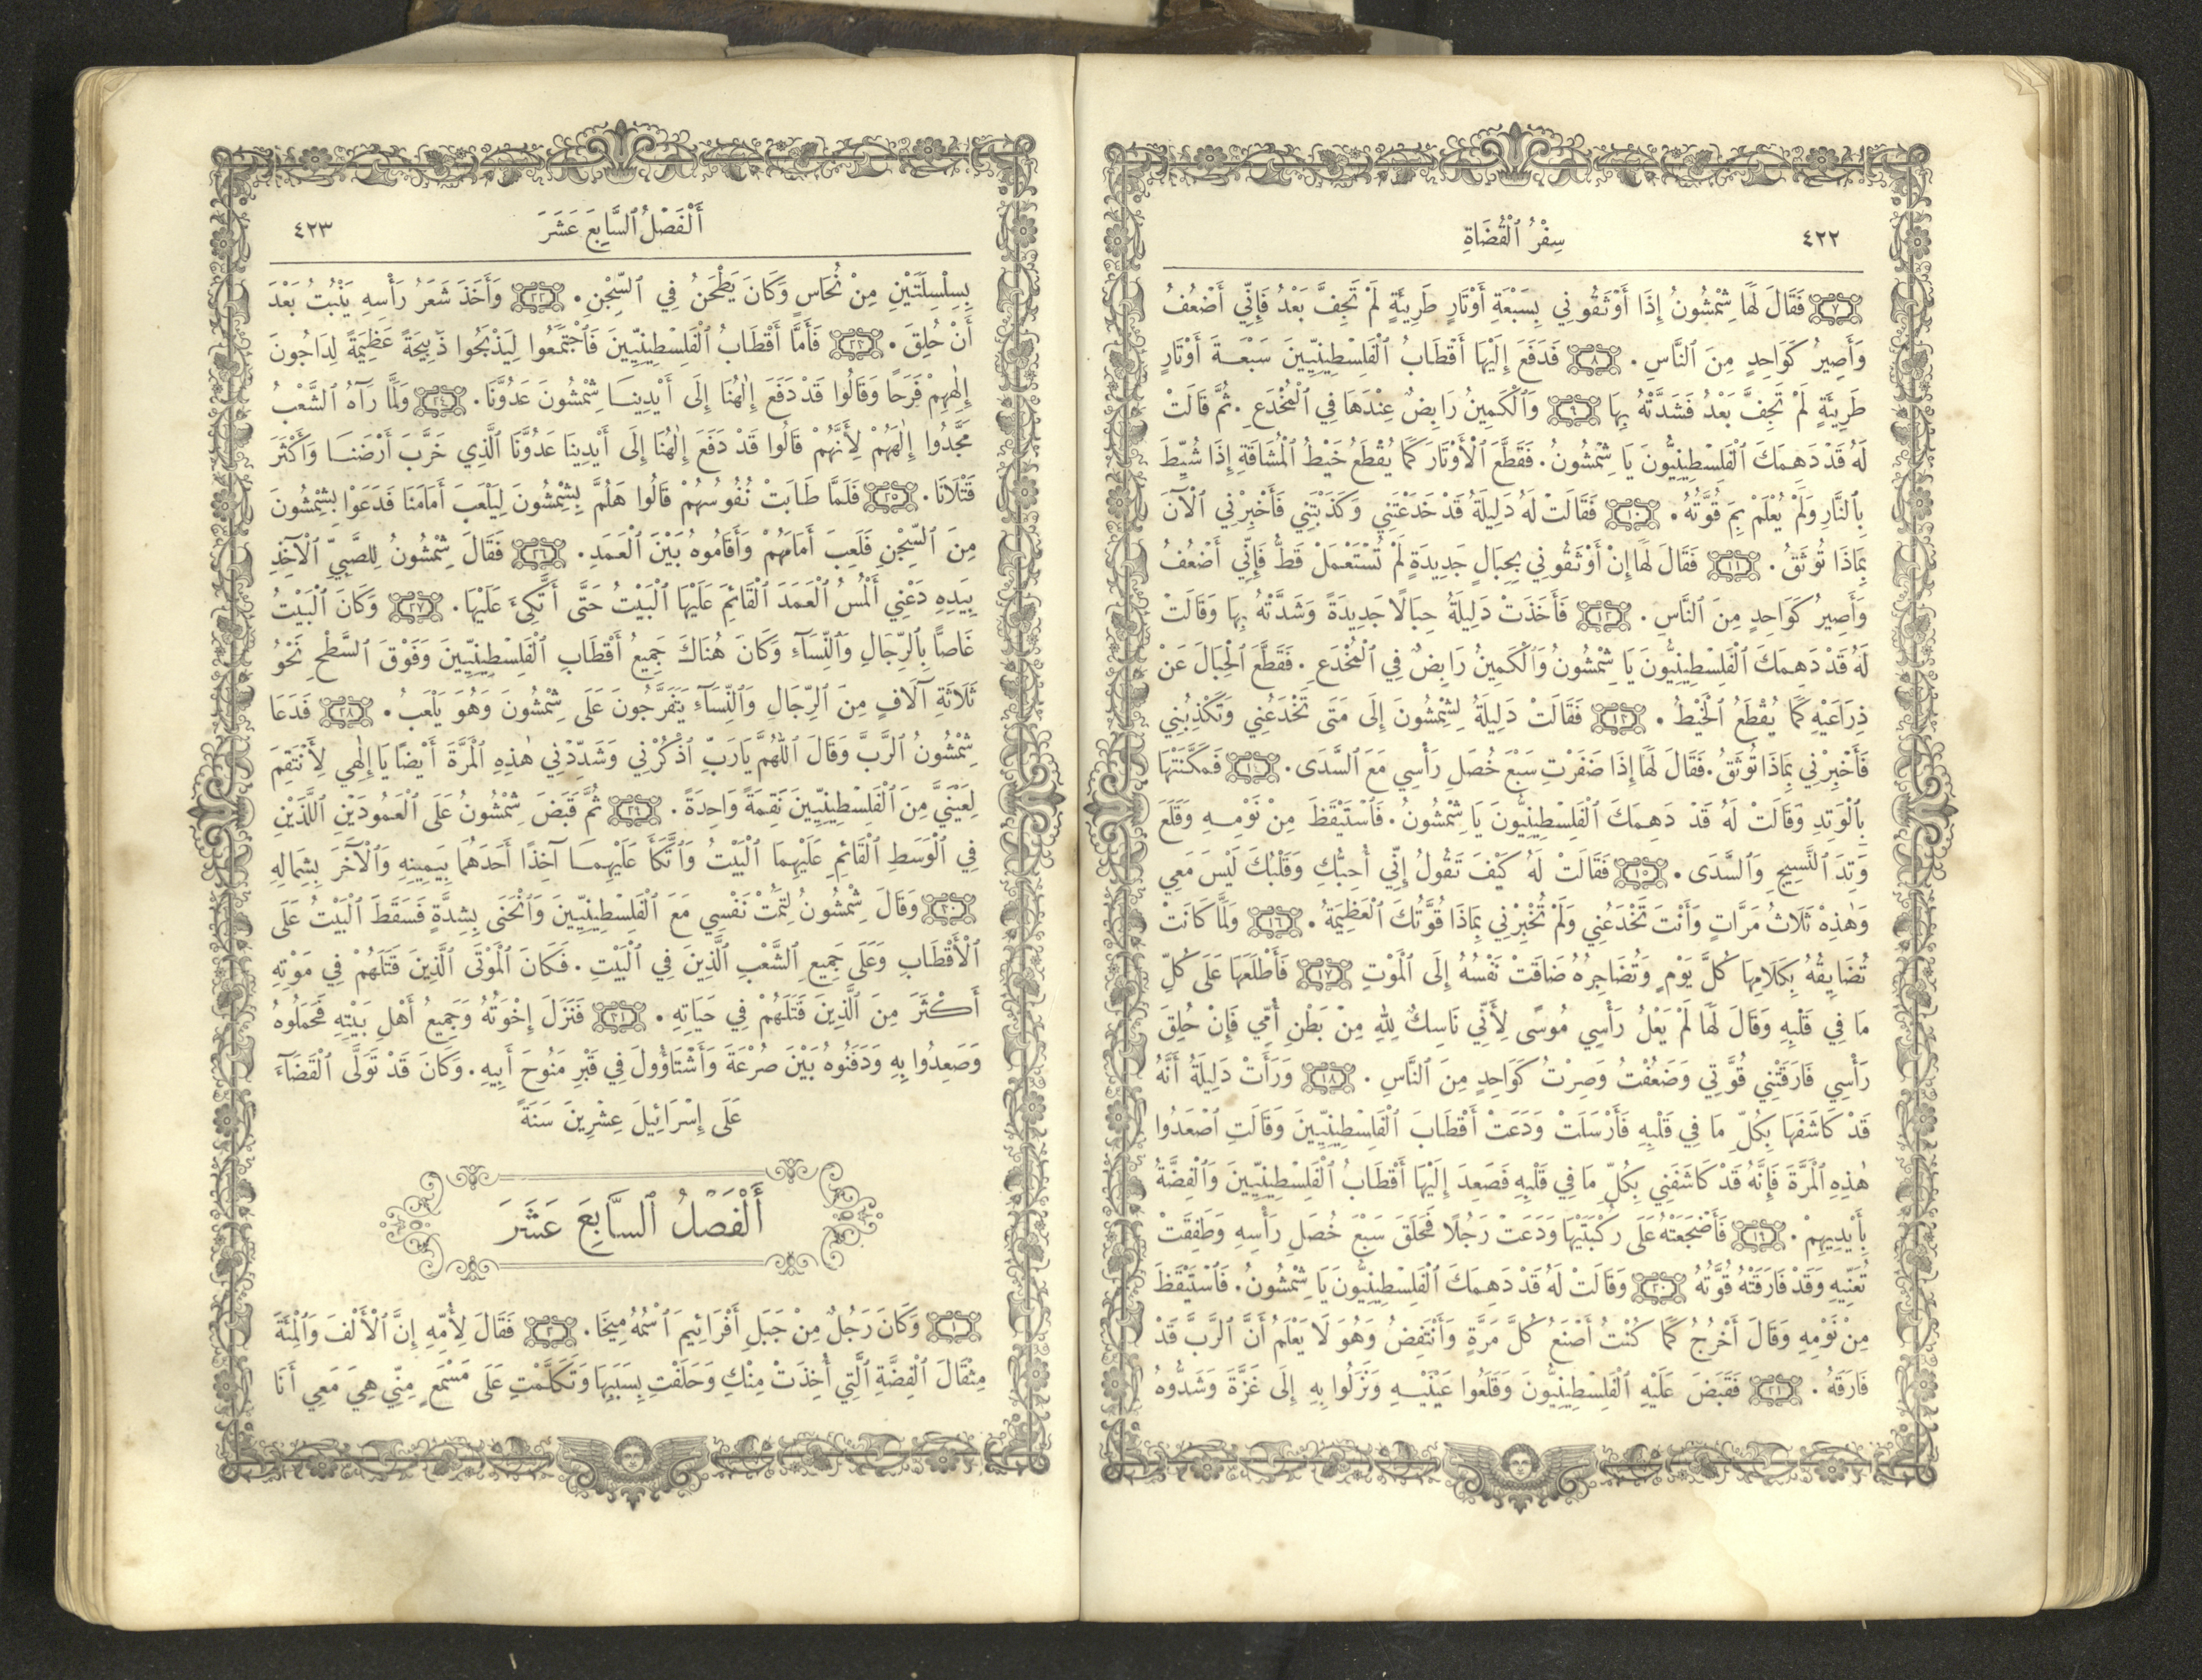 ٤٢٢ سِفْرُ ٱلْقُضَاةِ
٧ فَقَالَ لَهَا شِمْشُونُ إِذَا أَوْثَقُونِي بِسَبْعَةِ أَوْتَارٍ طَرِيئَةٍ لَمْ تَجِفَّ بَعْدُ فَإِنِّي أَضْعُفُ
وَأَصِيرُ كَوَاحِدٍ مِنَ ٱلنَّاسِ . ٨ فَدَفَعَ إِلَيْهَا أَقْطَابُ ٱلْفَلِسْطِينِيِّينَ سَبْعَةَ أَوْتَارٍ
طَرِيئَةٍ لَمْ تَجِفَّ بَعْدُ فَشَدَّتْهُ بِهَا ٩ وَٱلْكَمِينُ رَابِضٌ عِنْدَهَا فِي ٱلْمُخْدَعِ . ثُمَّ قَالَتْ
لَهُ قَدْ دَهِمَكَ ٱلْفَلِسْطِينِيُّونَ يَا شِمْشُونُ . فَقَطَّعَ ٱلْأَوْتَارَ كَمَا يُقْطَعُ خَيْطُ ٱلْمُشَاقَةِ إِذَا شُيِّطَ
بِٱلنَّارِ وَلَمْ يُعْلَمْ بِمَ قُوَّتُهُ . ١٠ فَقَالَتْ لَهُ دَلِيلَةُ قَدْ خَدَعْتَنِي وَكَذَبْتَنِي فَأَخْبِرْنِي ٱلْآنَ
بِمَاذَا تُوثَقُ . ١١ فَقَالَ لَهَا إِنْ أَوْثَقُونِي بِحِبَالٍ جَدِيدَةٍ لَمْ تُسْتَعْمَلْ قَطُّ فَإِنِّي أَضْعُفُ
وَأَصِيرُ كَوَاحِدٍ مِنَ ٱلنَّاسِ . ١٢ فَأَخَذَتْ دَلِيلَةُ حِبَالًا جَدِيدَةً وَشَدَّتْهُ بِهَا وَقَالَتْ
لَهُ قَدْ دَهِمَكَ ٱلْفَلِسْطِينِيُّونَ يَا شِمْشُونُ وَٱلْكَمِينُ رَابِضٌ فِي ٱلْمُخْدَعِ . فَقَطَّعَ ٱلْحِبَالَ عَنْ
ذِرَاعَيْهِ كَمَا يُقْطَعُ ٱلْخَيْطُ . ١٣ فَقَالَتْ دَلِيلَةُ لِشِمْشُونَ إِلَى مَتَى تَخْدَعُنِي وَتَكْذِبُنِي
فَأَخْبِرْنِي بِمَاذَا تُوثَقُ . فَقَالَ لَهَا إِذَا ضَفَرْتِ سَبْعَ خُصَلِ رَأْسِي مَعَ ٱلسَّدَى . ١٤ فَمَكَّنَتْهَا
بِٱلْوَتِدِ وَقَالَتْ لَهُ قَدْ دَهِمَكَ ٱلْفَلِسْطِينِيُّونَ يَا شِمْشُونُ . فَٱسْتَيْقَظَ مِنْ نَوْمِهِ وَقَلَعَ
وَتِدَ ٱلنَّسِيجِ وَٱلسَّدَى . ١٥ فَقَالَتْ لَهُ كَيْفَ تَقُولُ إِنِّي أُحِبُّكِ وَقَلْبُكَ لَيْسَ مَعِي
وَهٰذِهْ ثَلَاثُ مَرَّاتٍ وَأَنْتَ تَخْدَعُنِي وَلَمْ تُخْبِرْنِي بِمَاذَا قُوَّتُكَ ٱلْعَظِيمَةُ . ١٦ وَلَمَّا كَانَتْ
تُضَايِقُهُ بِكَلَامِهَا كُلَّ يَوْمٍ وَتُضَاجِرُهُ ضَاقَتْ نَفْسُهُ إِلَى ٱلْمَوْتِ ١٧ فَأَطْلَعَهَا عَلَى كُلِّ
مَا فِي قَلْبِهِ وَقَالَ لَهَا لَمْ يَعْلُ رَأْسِي مُوسًى لِأَنِّي نَاسِكٌ لِلهِ مِنْ بَطْنِ أُمِّي فَإِنْ حُلِقَ
رَأْسِي فَارَقَتْنِي قُوَّتِي وَضَعُفْتُ وَصِرْتُ كَوَاحِدٍ مِنَ ٱلنَّاسِ . ١٨ وَرَأَتْ دَلِيلَةُ أَنَّهُ
قَدْ كَاشَفَهَا بِكُلِّ مَا فِي قَلْبِهِ فَأَرْسَلَتْ وَدَعَتْ أَقْطَابَ ٱلْفَلِسْطِينِيِّينَ وَقَالَتِ ٱصْعَدُوا
هٰذِهِ ٱلْمَرَّةَ فَإِنَّهُ قَدْ كَاشَفَنِي بِكُلِّ مَا فِي قَلْبِهِ فَصَعِدَ إِلَيْهَا أَقْطَابُ ٱلْفَلِسْطِينِيِّينَ وَٱلْفِضَّةُ
بِأَيْدِيهِمْ . ١٩ فَأَضْجَعَتْهُ عَلَى رُكْبَتَيْهَا وَدَعَتْ رَجُلًا فَحَلَقَ سَبْعَ خُصَلِ رَأْسِهِ وَطَفِقَتْ
تُعَنِّيهِ وَقَدْ فَارَقَتْهُ قُوَّتُهُ ٢٠ وَقَالَتْ لَهُ قَدْ دَهِمَكَ ٱلْفَلِسْطِينِيُّونَ يَا شِمْشُونُ . فَٱسْتَيْقَظَ
مِنْ نَوْمِهِ وَقَالَ أَخْرُجُ كَمَا كُنْتُ أَصْنَعُ كُلَّ مَرَّةٍ وَأَنْتَفِضُ وَهُوَ لَا يَعْلَمُ أَنَّ ٱلرَّبَّ قَدْ
فَارَقَهُ . ٢١ فَقَبَضَ عَلَيْهِ ٱلْفَلِسْطِينِيُّونَ وَقَلَعُوا عَيْنَيْهِ وَنَزَلُوا بِهِ إِلَى غَزَّةَ وَشَدُّوهُ
أَلْفَصْلُ ٱلسَّابِعَ عَشَرَ ٤٢٣
بِسِلْسِلَتَيْنِ مِنْ نُحَاسٍ وَكَانَ يَطْحَنُ فِي ٱلسِّجْنِ . ٢٢ وَأَخَذَ شَعَرُ رَأْسِهِ يَنْبُتُ بَعْدَ
أَنْ حُلِقَ . ٢٣ فَأَمَّا أَقْطَابُ ٱلْفَلِسْطِينِيِّينَ فَٱجْتَمَعُوا لِيَذْبَحُوا ذَبِيحَةً عَظِيمَةً لِدَاجُونَ
إِلٰهِهِمْ فَرَحًا وَقَالُوا قَدْ دَفَعَ إِلٰهُنَا إِلَى أَيْدِينَا شِمْشُونَ عَدُوَّنَا . ٢٤ وَلَمَّا رَآهُ ٱلشَّعْبُ
مَجَّدُوا إِلٰهَهُمْ لِأَنَّهُمْ قَالُوا قَدْ دَفَعَ إِلٰهُنَا إِلَى أَيْدِينَا عَدُوَّنَا ٱلَّذِي خَرَّبَ أَرْضَنَا وَأَكْثَرَ
قَتْلَانَا . ٢٥ فَلَمَّا طَابَتْ نُفُوسُهُمْ قَالُوا هَلُمَّ بِشِمْشُونَ لِيَلْعَبَ أَمَامَنَا فَدَعَوْا بِشِمْشُونَ
مِنَ ٱلسِّجْنِ فَلَعِبَ أَمَامَهُمْ وَأَقَامُوهُ بَيْنَ ٱلْعَمَدِ . ٢٦ فَقَالَ شِمْشُونُ لِلصَّبِيِّ ٱلْآخِذِ
بِيَدِهِ دَعْنِي أَلْمُسُ ٱلْعَمَدَ ٱلْقَائِمَ عَلَيْهَا ٱلْبَيْتُ حَتَّى أَتَّكِئَ عَلَيْهَا . ٢٧ وَكَانَ ٱلْبَيْتُ
غَاصًّا بِٱلرِّجَالِ وَٱلنِّسَآءِ وَكَانَ هُنَاكَ جَمِيعُ أَقْطَابِ ٱلْفَلِسْطِينِيِّينَ وَفَوْقَ ٱلسَّطْحِ نَحْوُ
ثَلَاثَةِ آلَافٍ مِنَ ٱلرِّجَالِ وَٱلنِّسَآءِ يَتَفَرَّجُونَ عَلَى شِمْشُونَ وَهُوَ يَلْعَبُ . ٢٨ فَدَعَا
شِمْشُونُ ٱلرَّبَّ وَقَالَ ٱللّٰهُمَّ يَا رَبِّ ٱذْكُرْنِي وَشَدِّدْنِي هٰذِهِ ٱلْمَرَّةَ أَيْضًا يَا إِلٰهِي لِأَنْتَقِمَ
لِعَيْنَيَّ مِنَ ٱلْفَلِسْطِينِيِّينَ نَقِمَةً وَاحِدَةً . ٢٩ ثُمَّ قَبَضَ شِمْشُونُ عَلَى ٱلْعَمُودَيْنِ ٱللَّذَيْنِ
فِي ٱلْوَسَطِ ٱلْقَائِمِ عَلَيْهِمَا ٱلْبَيْتُ وَٱتَّكَأَ عَلَيْهِمَا آخِذًا أَحَدَهُمَا بِيَمِينِهِ وَٱلْآخَرَ بِشِمَالِهِ
٣٠ وَقَالَ شِمْشُونُ لِتَمُتْ نَفْسِي مَعَ ٱلْفَلِسْطِينِيِّينَ وَٱنْحَنَى بِشِدَّةٍ فَسَقَطَ ٱلْبَيْتُ عَلَى
ٱلْأَقْطَابِ وَعَلَى جَمِيعِ ٱلشَّعْبِ ٱلَّذِينَ فِي ٱلْبَيْتِ . فَكَانَ ٱلْمَوْتَى ٱلَّذِينَ قَتَلَهُمْ فِي مَوْتِهِ
أَكْثَرَ مِنَ ٱلَّذِينَ قَتَلَهُمْ فِي حَيَاتِهِ . ٣١ فَنَزَلَ إِخْوَتُهُ وَجَمِيعُ أَهْلِ بَيْتِهِ فَحَمَلُوهُ
وَصَعِدُوا بِهِ وَدَفَنُوهُ بَيْنَ صُرْعَةَ وَأَشْتَاؤُولَ فِي قَبْرِ مَنُوحَ أَبِيهِ . وَكَانَ قَدْ تَوَلَّى ٱلْقَضَآءَ
عَلَى إِسْرَائِيلَ عِشْرِينَ سَنَةً
أَلْفَصْلُ ٱلسَّابِعَ عَشَرَ
١ وَكَانَ رَجُلٌ مِنْ جَبَلِ أَفْرَائِيمَ ٱسْمُهُ مِيخَا . ٢ فَقَالَ لِأُمِّهِ إِنَّ ٱلْأَلْفَ وَٱلْمِئَةَ
مِثْقَالَ ٱلْفِضَّةِ ٱلَّتِي أُخِذَتْ مِنْكِ وَحَلَفْتِ بِسَبَبِهَا وَتَكَلَّمْتِ عَلَى مَسْمَعٍ مِنِّي هِيَ مَعِي أَنَا